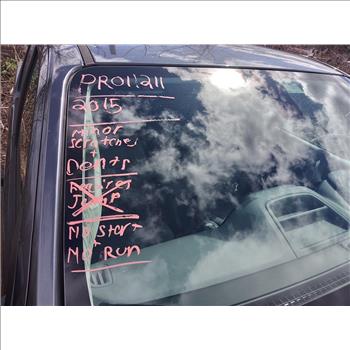 PRO1!211
2015
Minor
Scratches
+
Dents
Requires
Jump
No Start
+
No Run